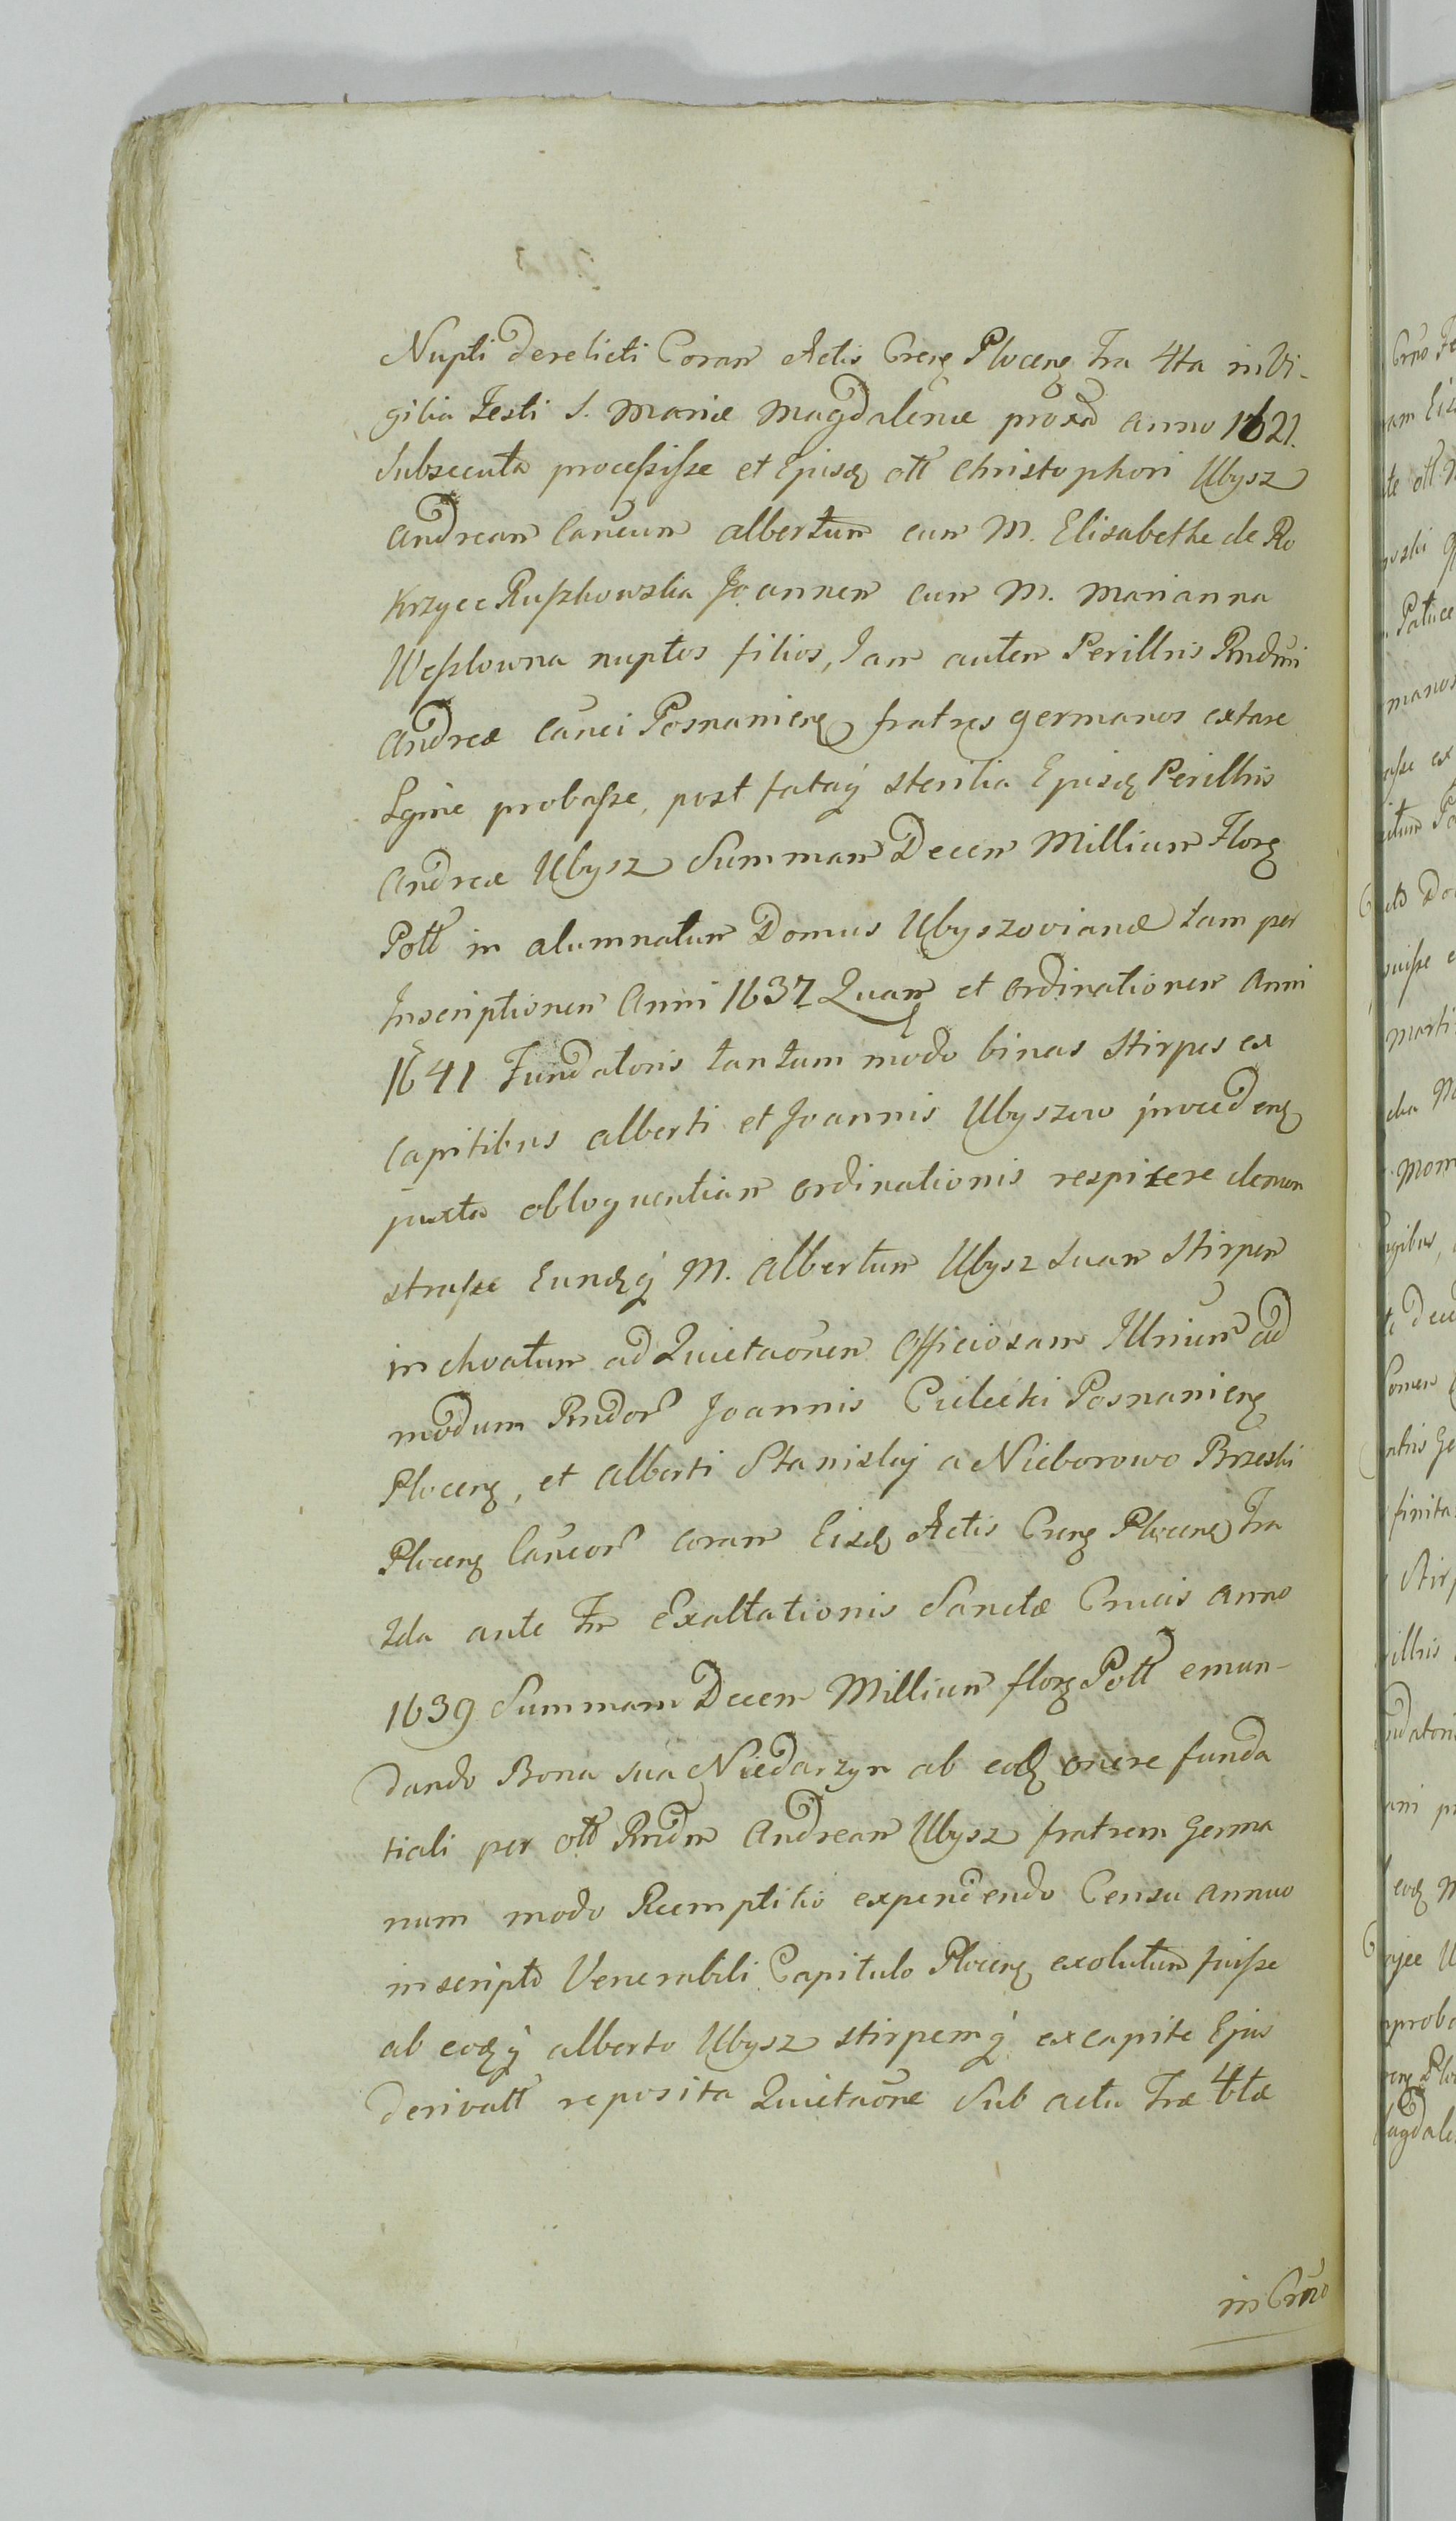 Nupti derelicti Coram Actis Crens Plocens Fra 4ta in Vi-
gilia Festi S. Mariæ Magdalenæ proxa anno 1621.
subsecuta processisse et Ejusd ott Christophori Ubysz
Andream Cancum Albertum cum M. Elisabethe de Ro
krzyce Ruszkowska Joannem cum M. Marianna
Weslowna nuptos filios, Jam autem Perillris Rndmi
Andreæ Canci Posnaniens fratres germanos extare
Lgime probasse, post fataq sterilia Ejusd Perillris
Andreæ Ubysz Summam Decem Millium Flor
Poll in alumnatum Domus Ubyszovianæ tam per
Inscriptionem Anni 1637 Quam et ordinationem Anni
1641 Fundatoris tantum modo binas Stirpes ex
Capitibus Alberti et Joannis Ubyszow proceden
juxta obloquentiam ordinationis respicere demon
strasse Eundq M. Albertum Ubysz suam Stirpem
inchoatum ad Quietaonem Officiosam Illrium ad
modum Rndor Joannis Cielecki Posnaniens
Plocens, et Alberti Stanislai a Nieborowo Brzeski
Plocens Cancor coram Eisd Actis Crens Plocens Fra
2da ante Fm Exaltationis Sanctæ Crucis Anno
1639 Summam Decem Millium flor Poll emun-
dando Bona sua Niedarzyn ab eod onere funda
tiali per ott Rndm Andream Ubysz fratrem Germa
num modo Reemptitio expendendo Censu annuo
inscripto Venerabili Capitulo Plocens exolutum fuisse
ab eodq Alberto Ubysz stirpemq ex capite Ejus
derivatt reposita Quietaone Sub actu Fræ 4tæ
in Crno